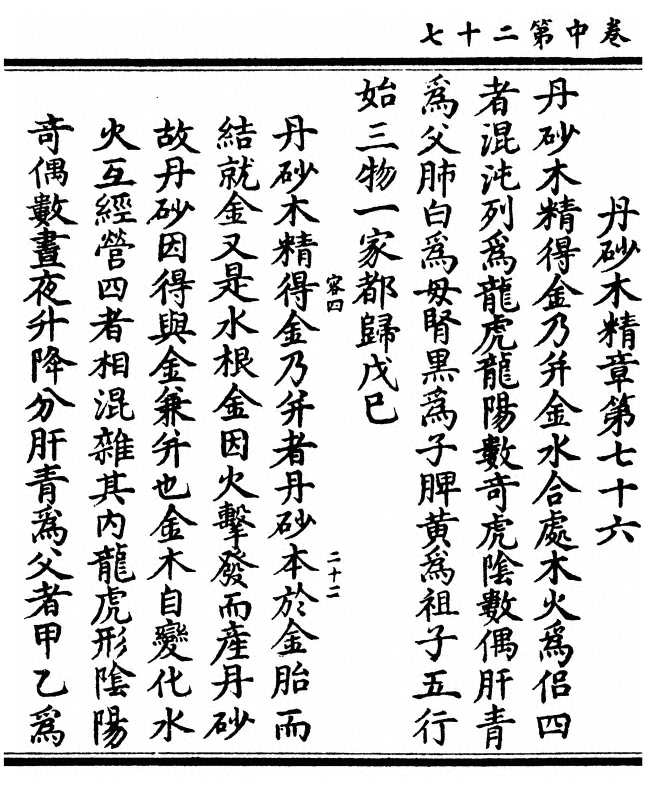 卷中第二十七
丹砂木精章第七十六
丹砂木精得金乃并金水合處木火爲侶四
者混沌列爲龍虎龍陽數奇虎陰數偶肝青
爲父肺白爲母腎黑爲子脾黃爲祖子五行
始三物一家都歸戊己
容四
二十二
丹砂木精得金乃并者丹砂本於金胎而
結就金又是水根金因火擊發而產丹砂
故丹砂因得與金兼并也金木自變化水
火互經營四者相混雜其内龍虎形陰陽
奇偶數晝夜升降分肝青爲父者甲乙爲